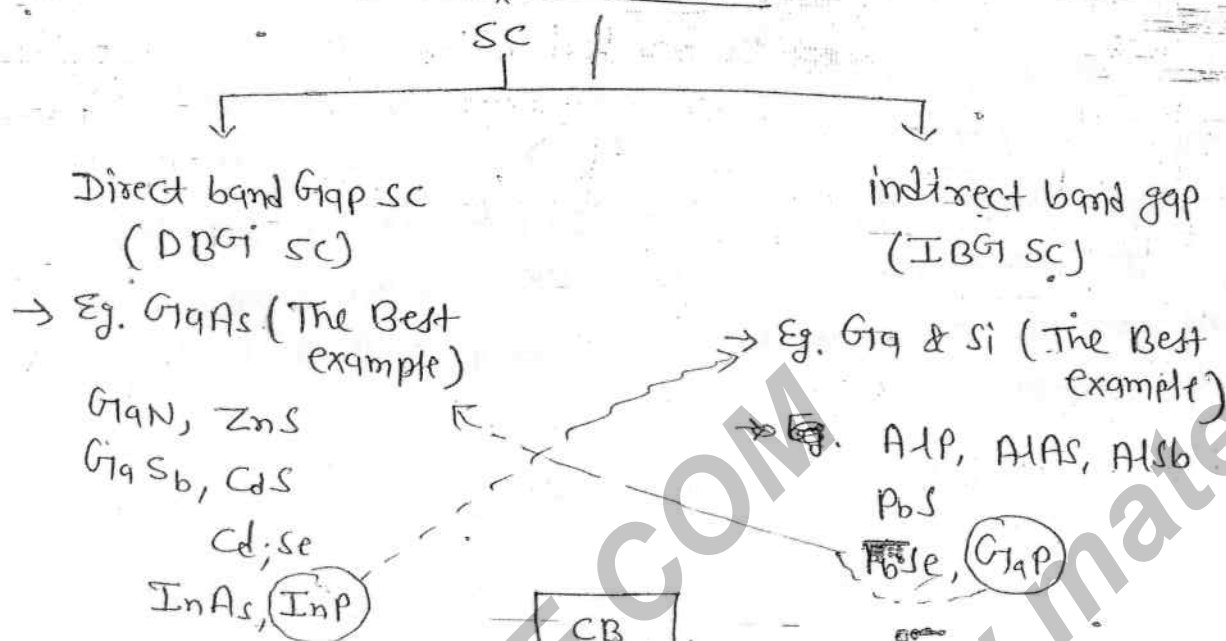 SC
Direct band Gap SC
(DBG SC)
→ Eg. GaAs (The Best
example)
GaN, ZnS
GaSb, CdS
Cd,Se
InAs, InP
indirect band gap
(IBG SC)
→ Eg. Ga & Si (The Best
example)
→ Eg. AlP, AlAs, AlSb
PbS
PbSe, GaP
CB
T COM
mate